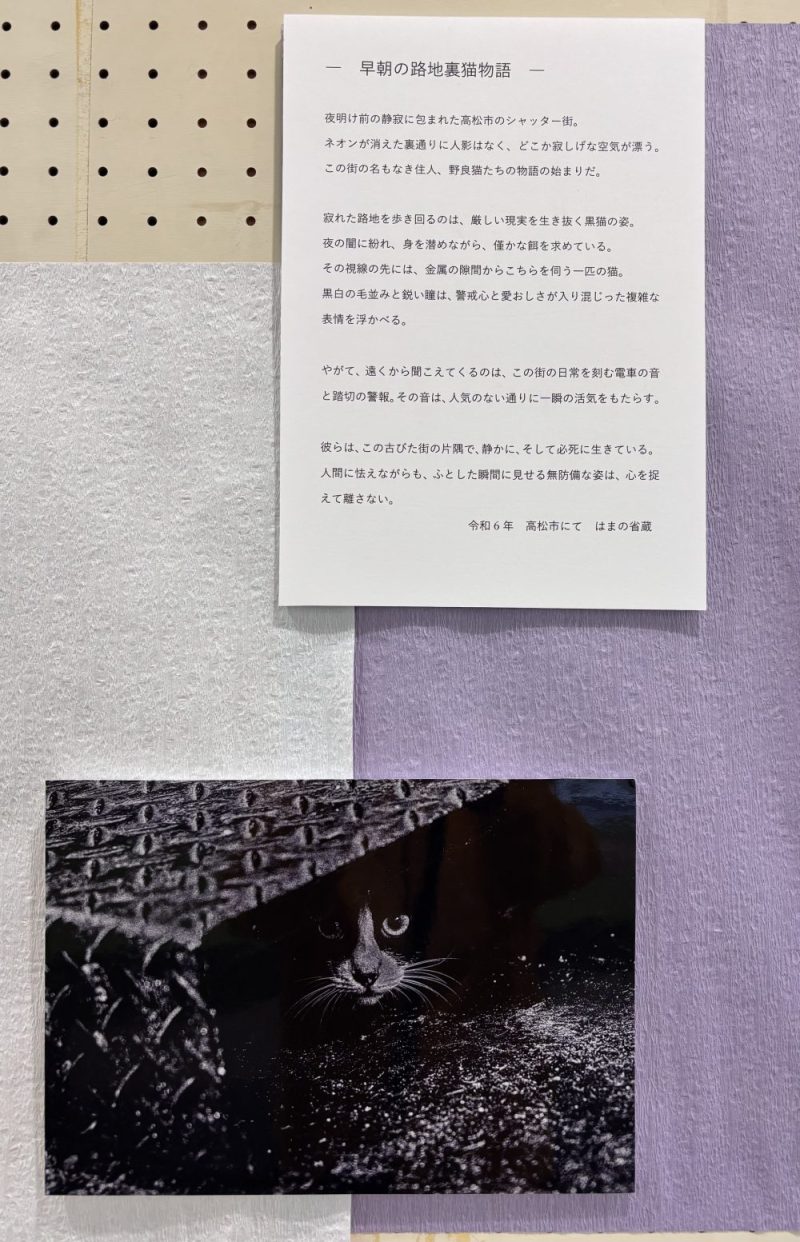 ― 早朝の路地裏猫物語 ―
夜明け前の静寂に包まれた高松市のシャッター街。
ネオンが消えた裏通りに人影はなく、どこか寂しげな空気が漂う。
この街の名もなき住人、野良猫たちの物語の始まりだ。
寂れた路地を歩き回るのは、厳しい現実を生き抜く黒猫の姿。
夜の闇に紛れ、身を潜めながら、僅かな餌を求めている。
その視線の先には、金属の隙間からこちらを伺う一匹の猫。
黒白の毛並みと鋭い瞳は、警戒心と愛おしさが入り混じった複雑な
表情を浮かべる。
やがて、遠くから聞こえてくるのは、この街の日常を刻む電車の音
と踏切の警報。その音は、人気のない通りに一瞬の活気をもたらす。
彼らは、この古びた街の片隅で、静かに、そして必死に生きている。
人間に怯えながらも、ふとした瞬間に見せる無防備な姿は、心を捉
えて離さない。
令和6年 高松市にて はまの省蔵